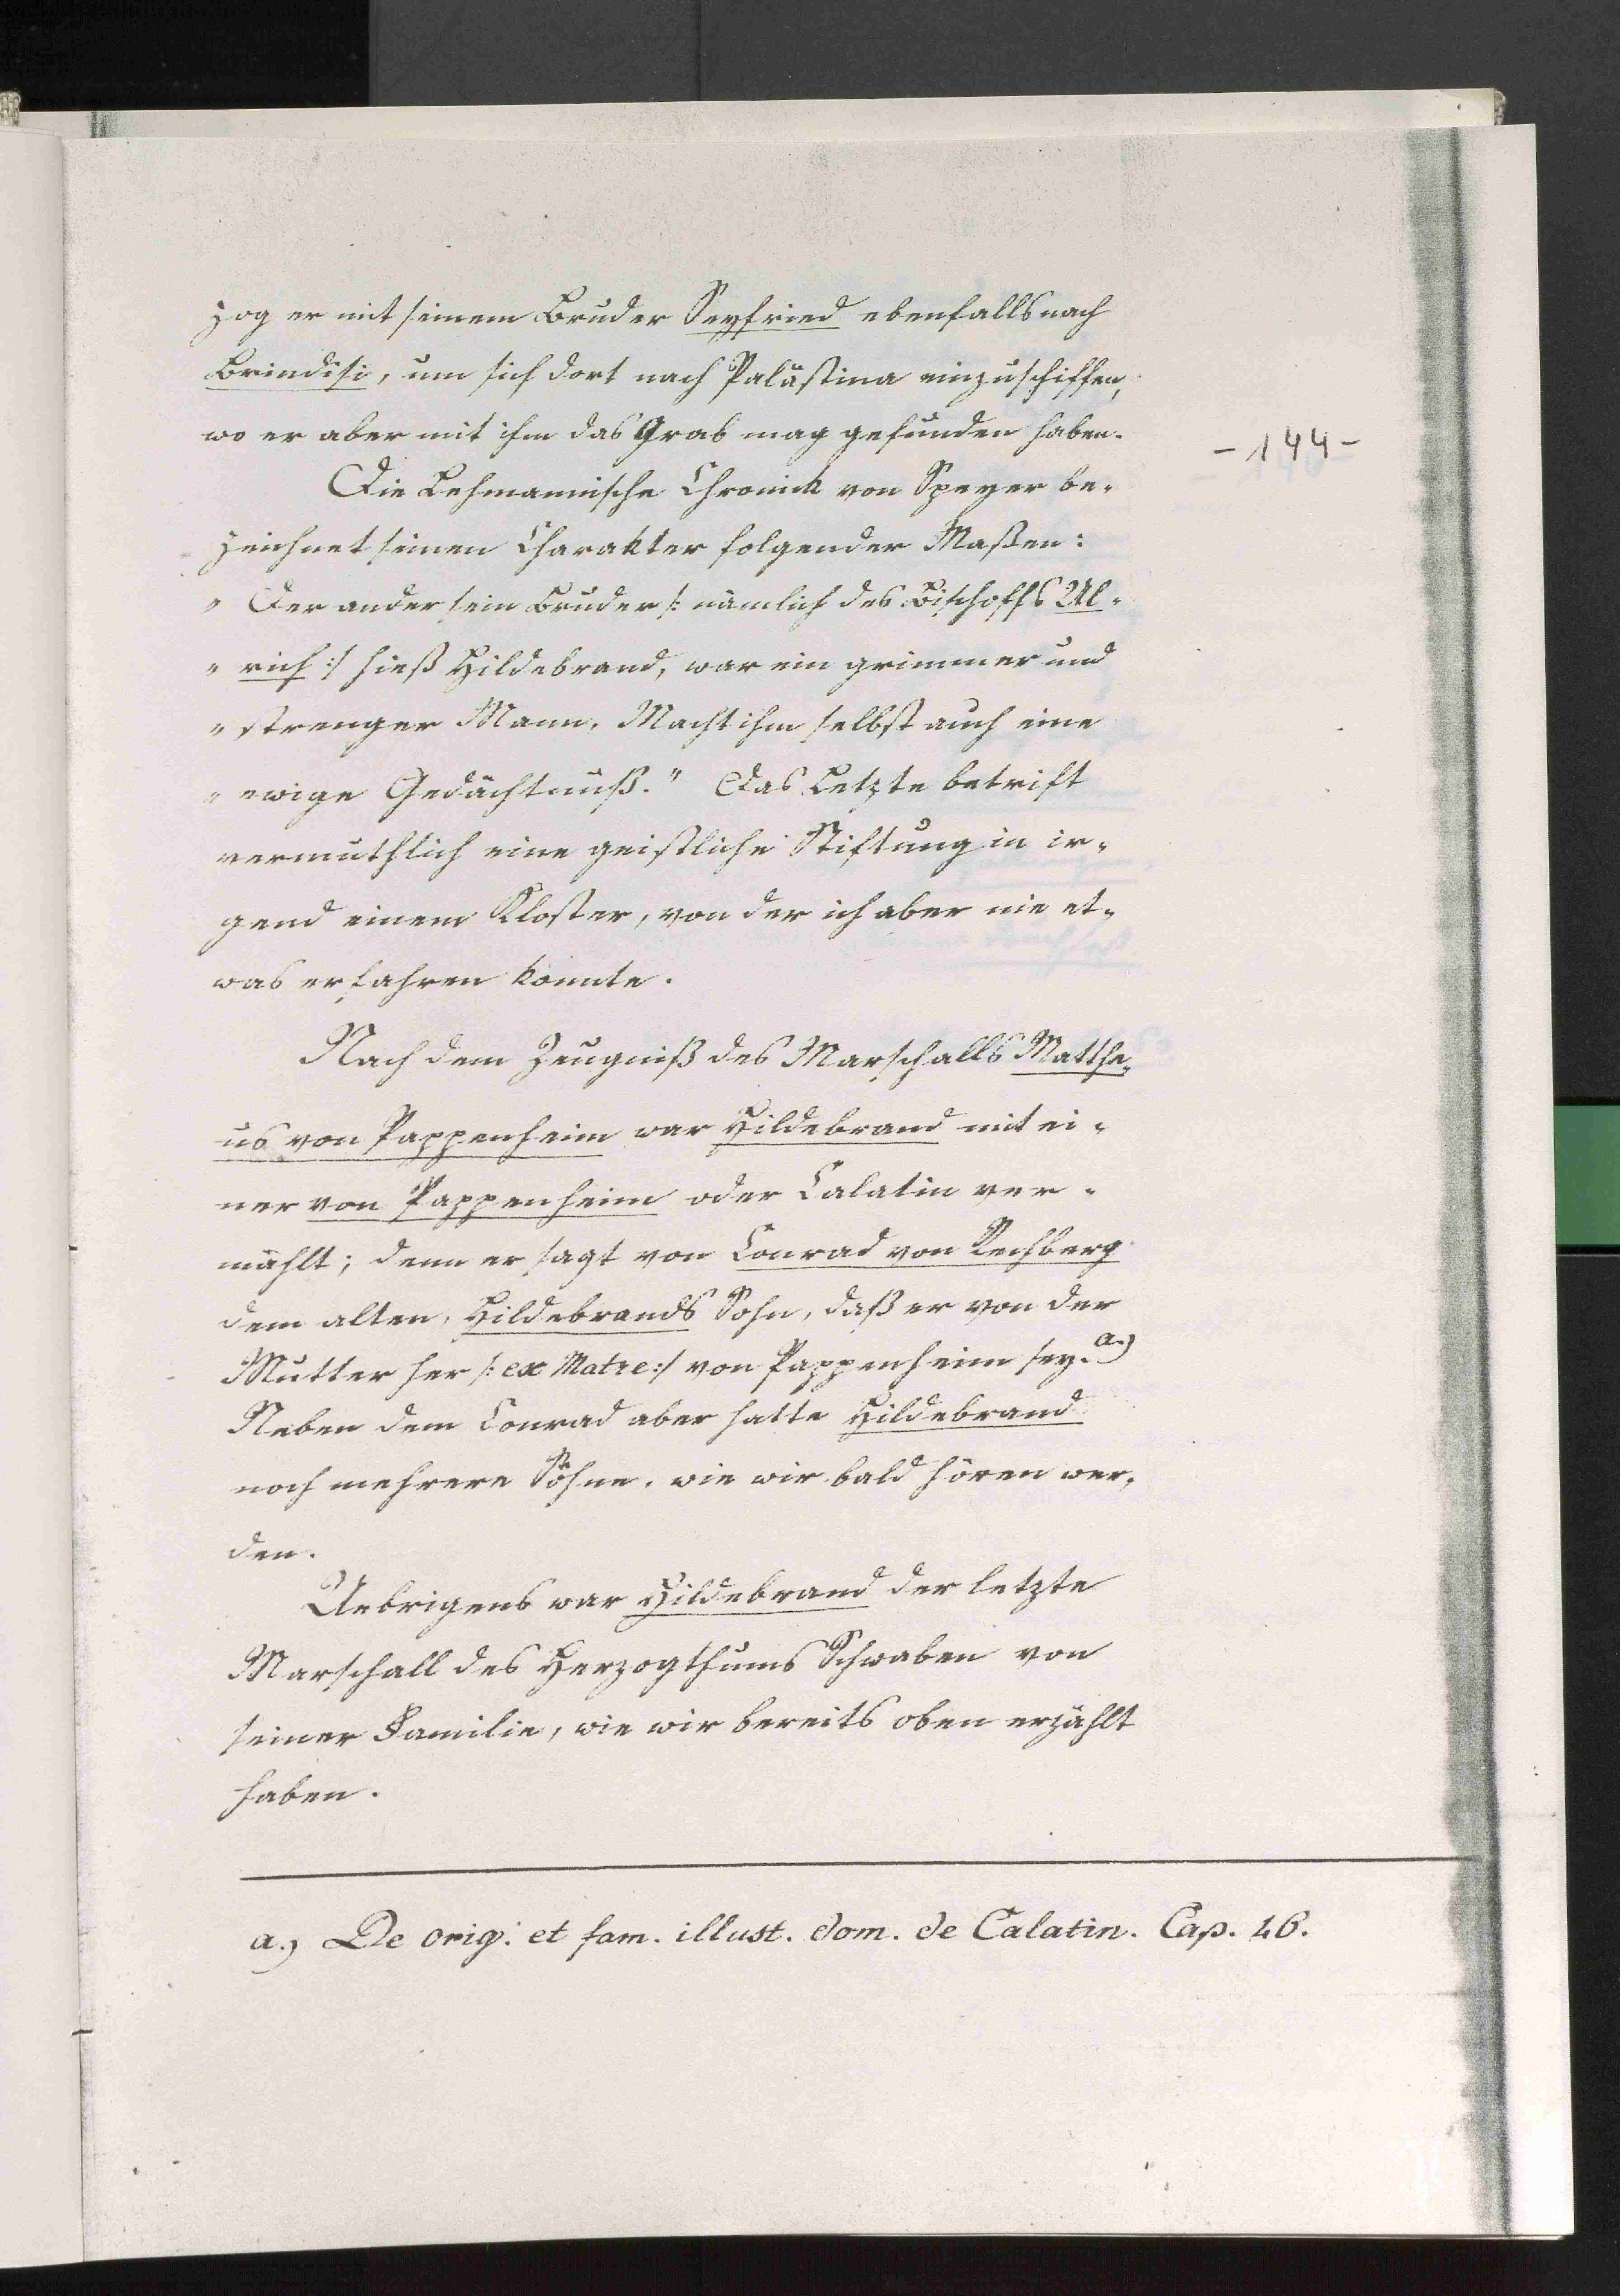 zog er mit seinem Bruder Seyfried ebenfalls nach
Brindisi, um sich dort nach Palästina einzuschiffen,
wo er aber mit ihm das Grab mag gefunden haben.
- 144 -
Die Lehmannische Chronick von Speyer be-
zeichnet seinen Charakter folgender Maßen:
" Der ander sein Bruder /: nämlich des Bischoffs Ul-
" rich :/ hieß Hildebrand, war ein grimmer und
" strenger Mann, Macht ihm selbst auch eine
" ewige Gedächtnuß." Das Letzte betrift
vermuthlich eine geistliche Stiftung in ir-
gend einem Kloster, von der ich aber nie et-
was erfahren konnte.
Nach dem Zeugniß des Marschalls Matthe-
us von Pappenheim war Hildebrand mit ei-
ner von Pappenheim oder Calatin ver-
mählt; denn er sagt von Conrad von Rechberg
dem alten, Hildebrands Sohn, daß er von der
Mutter her /: ex Matre :/ von Pappenheim sey. a.)
Neben dem Conrad aber hatte Hildebrand
noch mehrere Söhne, wie wir bald hören wer-
den.
Uebrigens war Hildebrand der letzte
Marschall des Herzogthums Schwaben von
seiner Familie, wie wir bereits oben erzählt
haben.
a.) De orig. et fam. illust. dom. de Calatin. Cap. 16.